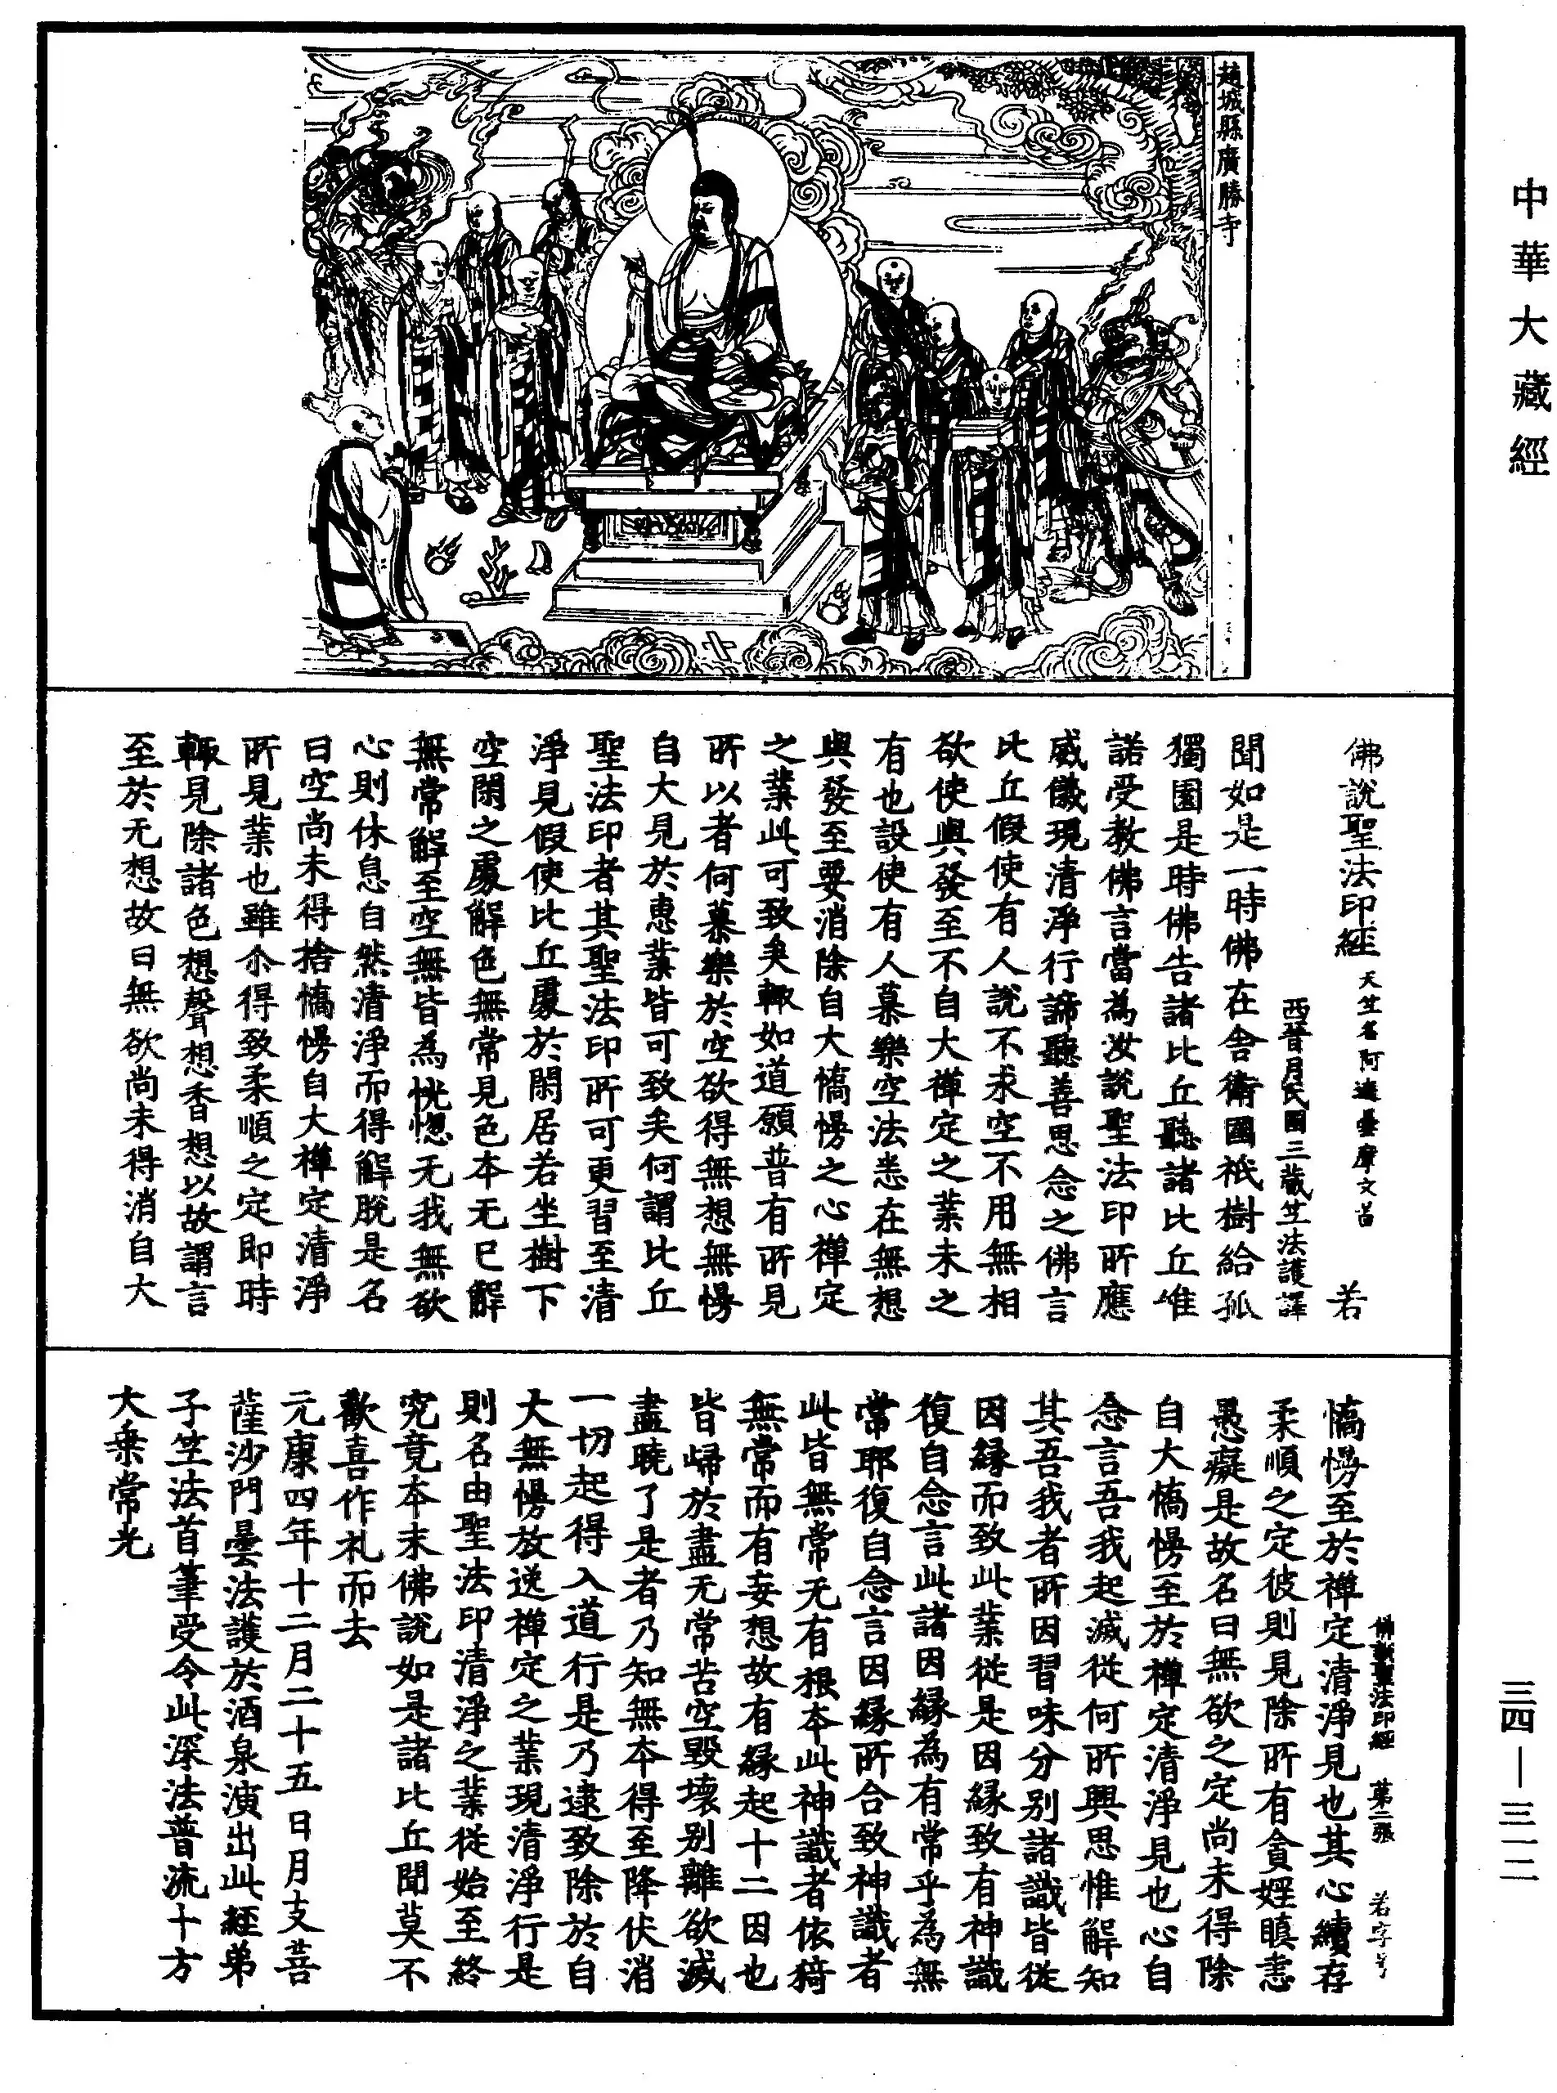 中華大藏經
趙城縣廣勝寺
佛說聖法印經 天竺名阿遮曇摩文圖 若
西晉月氏國三藏竺法護譯
聞如是一時佛在舍衛國祇樹給孤
獨園是時佛告諸比丘聽諸比丘唯
諾受教佛言當為汝說聖法印所應
威儀現清淨行諦聽善思念之佛言
比丘假使有人說不求空不用無相
欲使興發至不自大禪定之業未之
有也設使有人慕樂空法志在無想
興發至要消除自大憍慢之心禪定
之業此可致矣輒如道願普有所見
所以者何慕樂於空欲得無想無慢
自大見於惠業皆可致矣何謂比丘
聖法印者其聖法印所可更習至清
淨見假使比丘處於閑居若坐樹下
空閑之處解色無常見色本无已解
無常解至空無皆為恍惚无我無欲
心則休息自然清淨而得解脫是名
曰空尚未得捨憍慢自大禪定清淨
所見業也雖尒得致柔順之定即時
輒見除諸色想聲想香想以故謂言
至於无想故曰無欲尚未得消自大
佛說聖法印經 第二張 若字号
憍慢至於禪定清淨見也其心續存
柔順之定彼則見除所有貪婬瞋恚
愚癡是故名曰無欲之定尚未得除
自大憍慢至於禪定清淨見也心自
念言吾我起滅從何所興思惟解知
其吾我者所因習味分別諸識皆從
因緣而致此業從是因緣致有神識
復自念言此諸因緣為有常乎為無
常耶復自念言因緣所合致神識者
此皆無常无有根本此神識者依猗
無常而有妄想故有緣起十二因也
皆歸於盡无常苦空毀壞別離欲滅
盡曉了是者乃知無本得至降伏消
一切起得入道行是乃逮致除於自
大無慢放逸禪定之業現清淨行是
則名由聖法印清淨之業從始至終
究竟本末佛說如是諸比丘聞莫不
歡喜作礼而去
元康四年十二月二十五日月支菩
薩沙門曇法護於酒泉演出此經弟
子竺法首筆受令此深法普流十方
大乘常光
三四—三一二